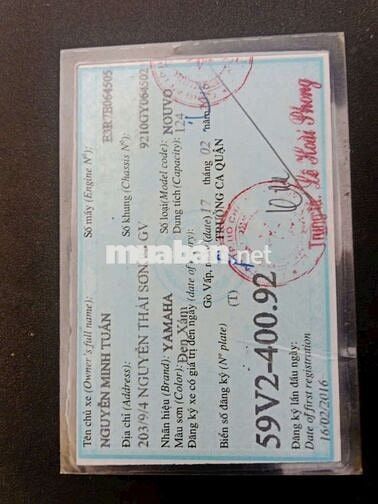 Tên chủ xe (Owner's full name):
NGUYỄN MINH TUẤN
Số máy (Engine Nº): E3R7E064505
Địa chỉ (Address): Số khung (Chassis Nº):
203/9/4 NGUYỄN THÁI SƠN GV 9210GY064502
Nhãn hiệu (Brand): YAMAHA Số loại (Model code): NOUVO
Màu sơn (Color): Đen Xám Dung tích (Capacity): 124
Đăng ký xe có giá trị đến ngày (date of expiry):
Gò Vấp, (date) 17 tháng 02 năm 2016
Biển số đăng ký (Nº plate) (T) TRƯỞNG CA QUẬN
59V2-400.92
Đăng ký lần đầu ngày:
Date of first registration
16/02/2016
Trung tá. Lê Hoài Phong
muaban.net